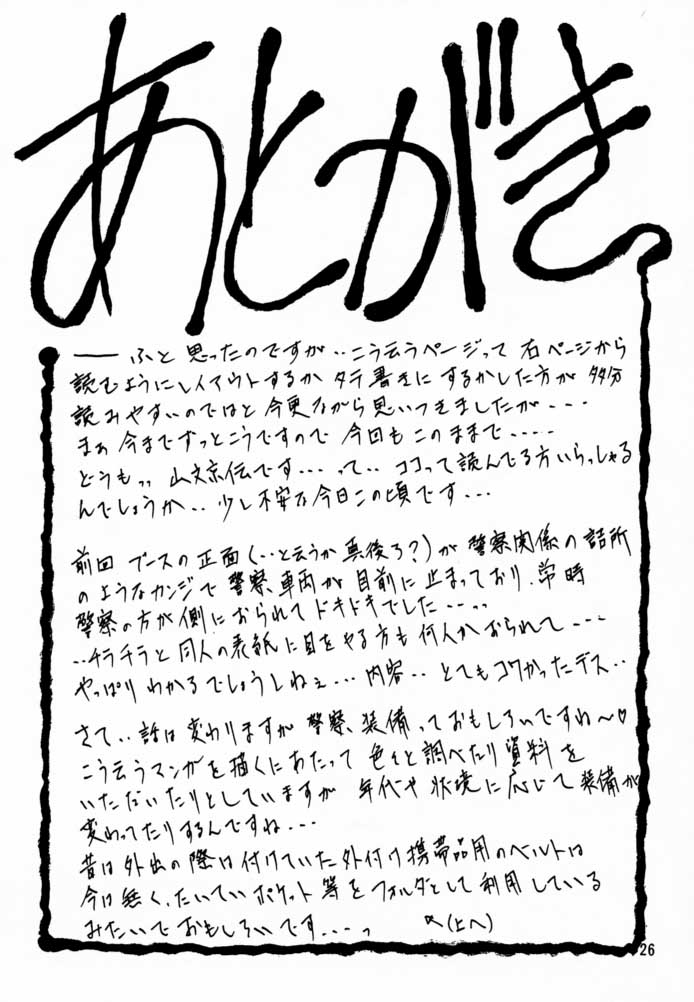 あとがき
――ふと思ったのですが‥こう云うページって右ページから
読むようにレイアウトするかタテ書きにするかした方が多分
読みやすいのではと今更ながら思いつきましたが‥‥
まぁ今までずっとこうですので今回もこのままで‥‥‥
どうもっっ山文京伝です‥‥って‥ココって読んでる方いらっしゃる
んでしょうか‥少し不安な今日この頃です‥‥
前回ブースの正面(‥と云うか真後ろ?)が警察関係の詰所
のようなカンジで警察車両が目前に止まっており、常時
警察の方が側におられてドキドキでした‥‥っっ
‥チラチラと同人の表紙に目をやる方も何人かおられて‥‥
やっぱりわかるでしょうしねぇ‥‥内容‥とてもコワかったデス‥
さて‥話は変わりますが警察装備っておもしろいですね〜♡
こう云うマンガを描くにあたって色々と調べたり資料を
いただいたりとしていますが年代や状境に応じて装備が
変わってたりするんですね‥‥
昔は外出の際は付けていた外付け携帯品用のベルトは
今は無く、たいていポケット等をフォルダとして利用している
みたいでおもしろいです‥‥っ (上へ)
26